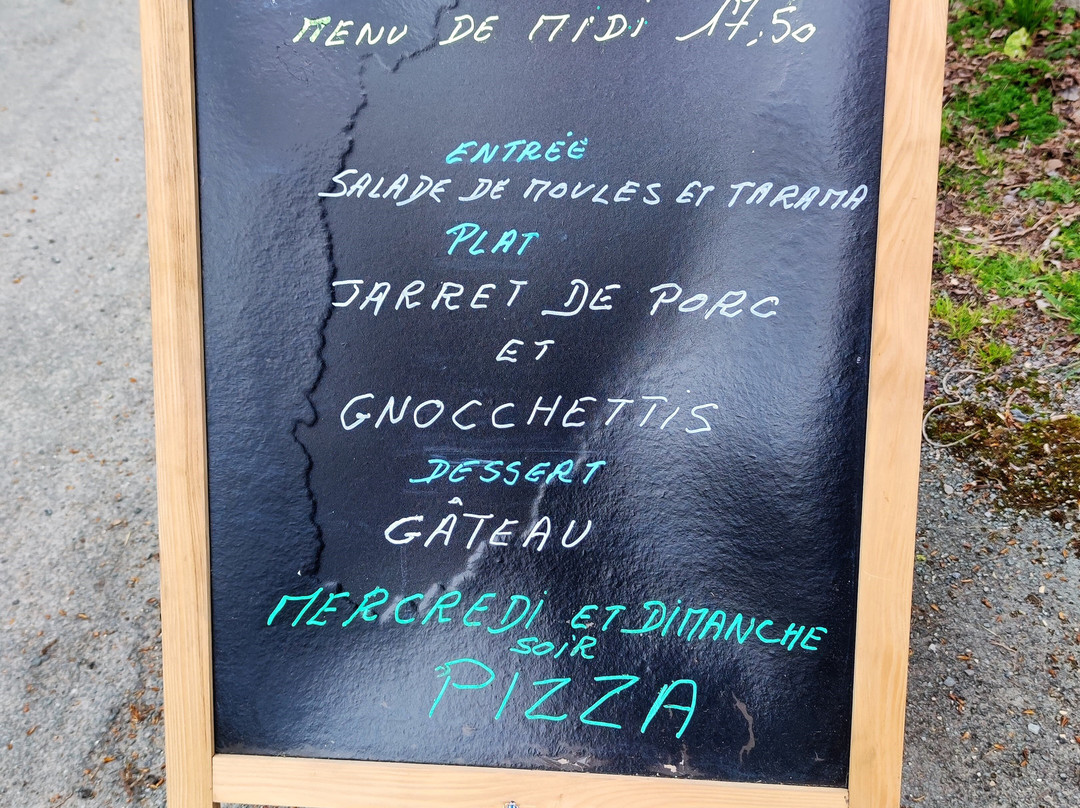 MENU DE MIDI 17,50
ENTRÉE
SALADE DE MOULES ET TARAMA
PLAT
JARRET DE PORC
ET
GNOCCHETTIS
DESSERT
GÂTEAU
MERCREDI ET DIMANCHE
SOIR
PIZZA